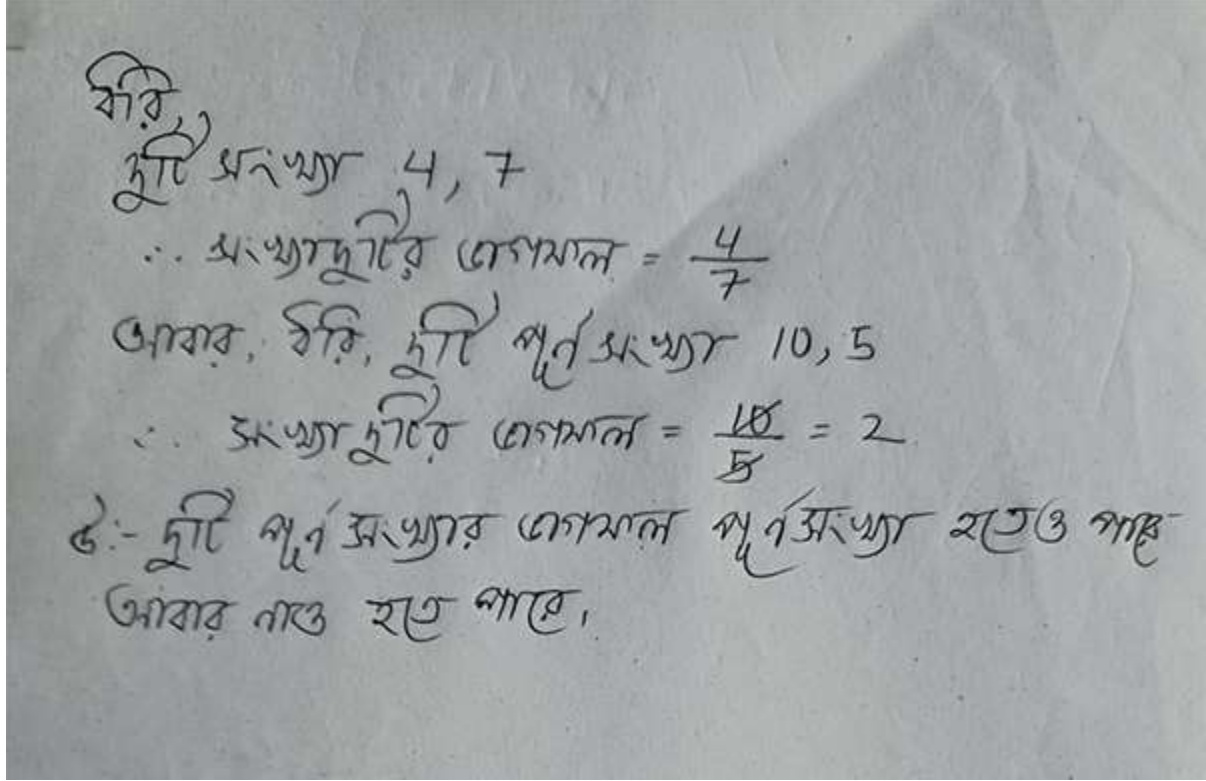 ধরি,
দুটি সংখ্যা 4, 7
∴ সংখ্যাদুটির ভাগফল = 4/7
আবার, ধরি, দুটি পূর্ন সংখ্যা 10, 5
∴ সংখ্যা দুটির ভাগফল = 10/5 = 2
উ:- দুটি পূর্ন সংখ্যার ভাগফল পূর্নসংখ্যা হতেও পারে
আবার নাও হতে পারে।